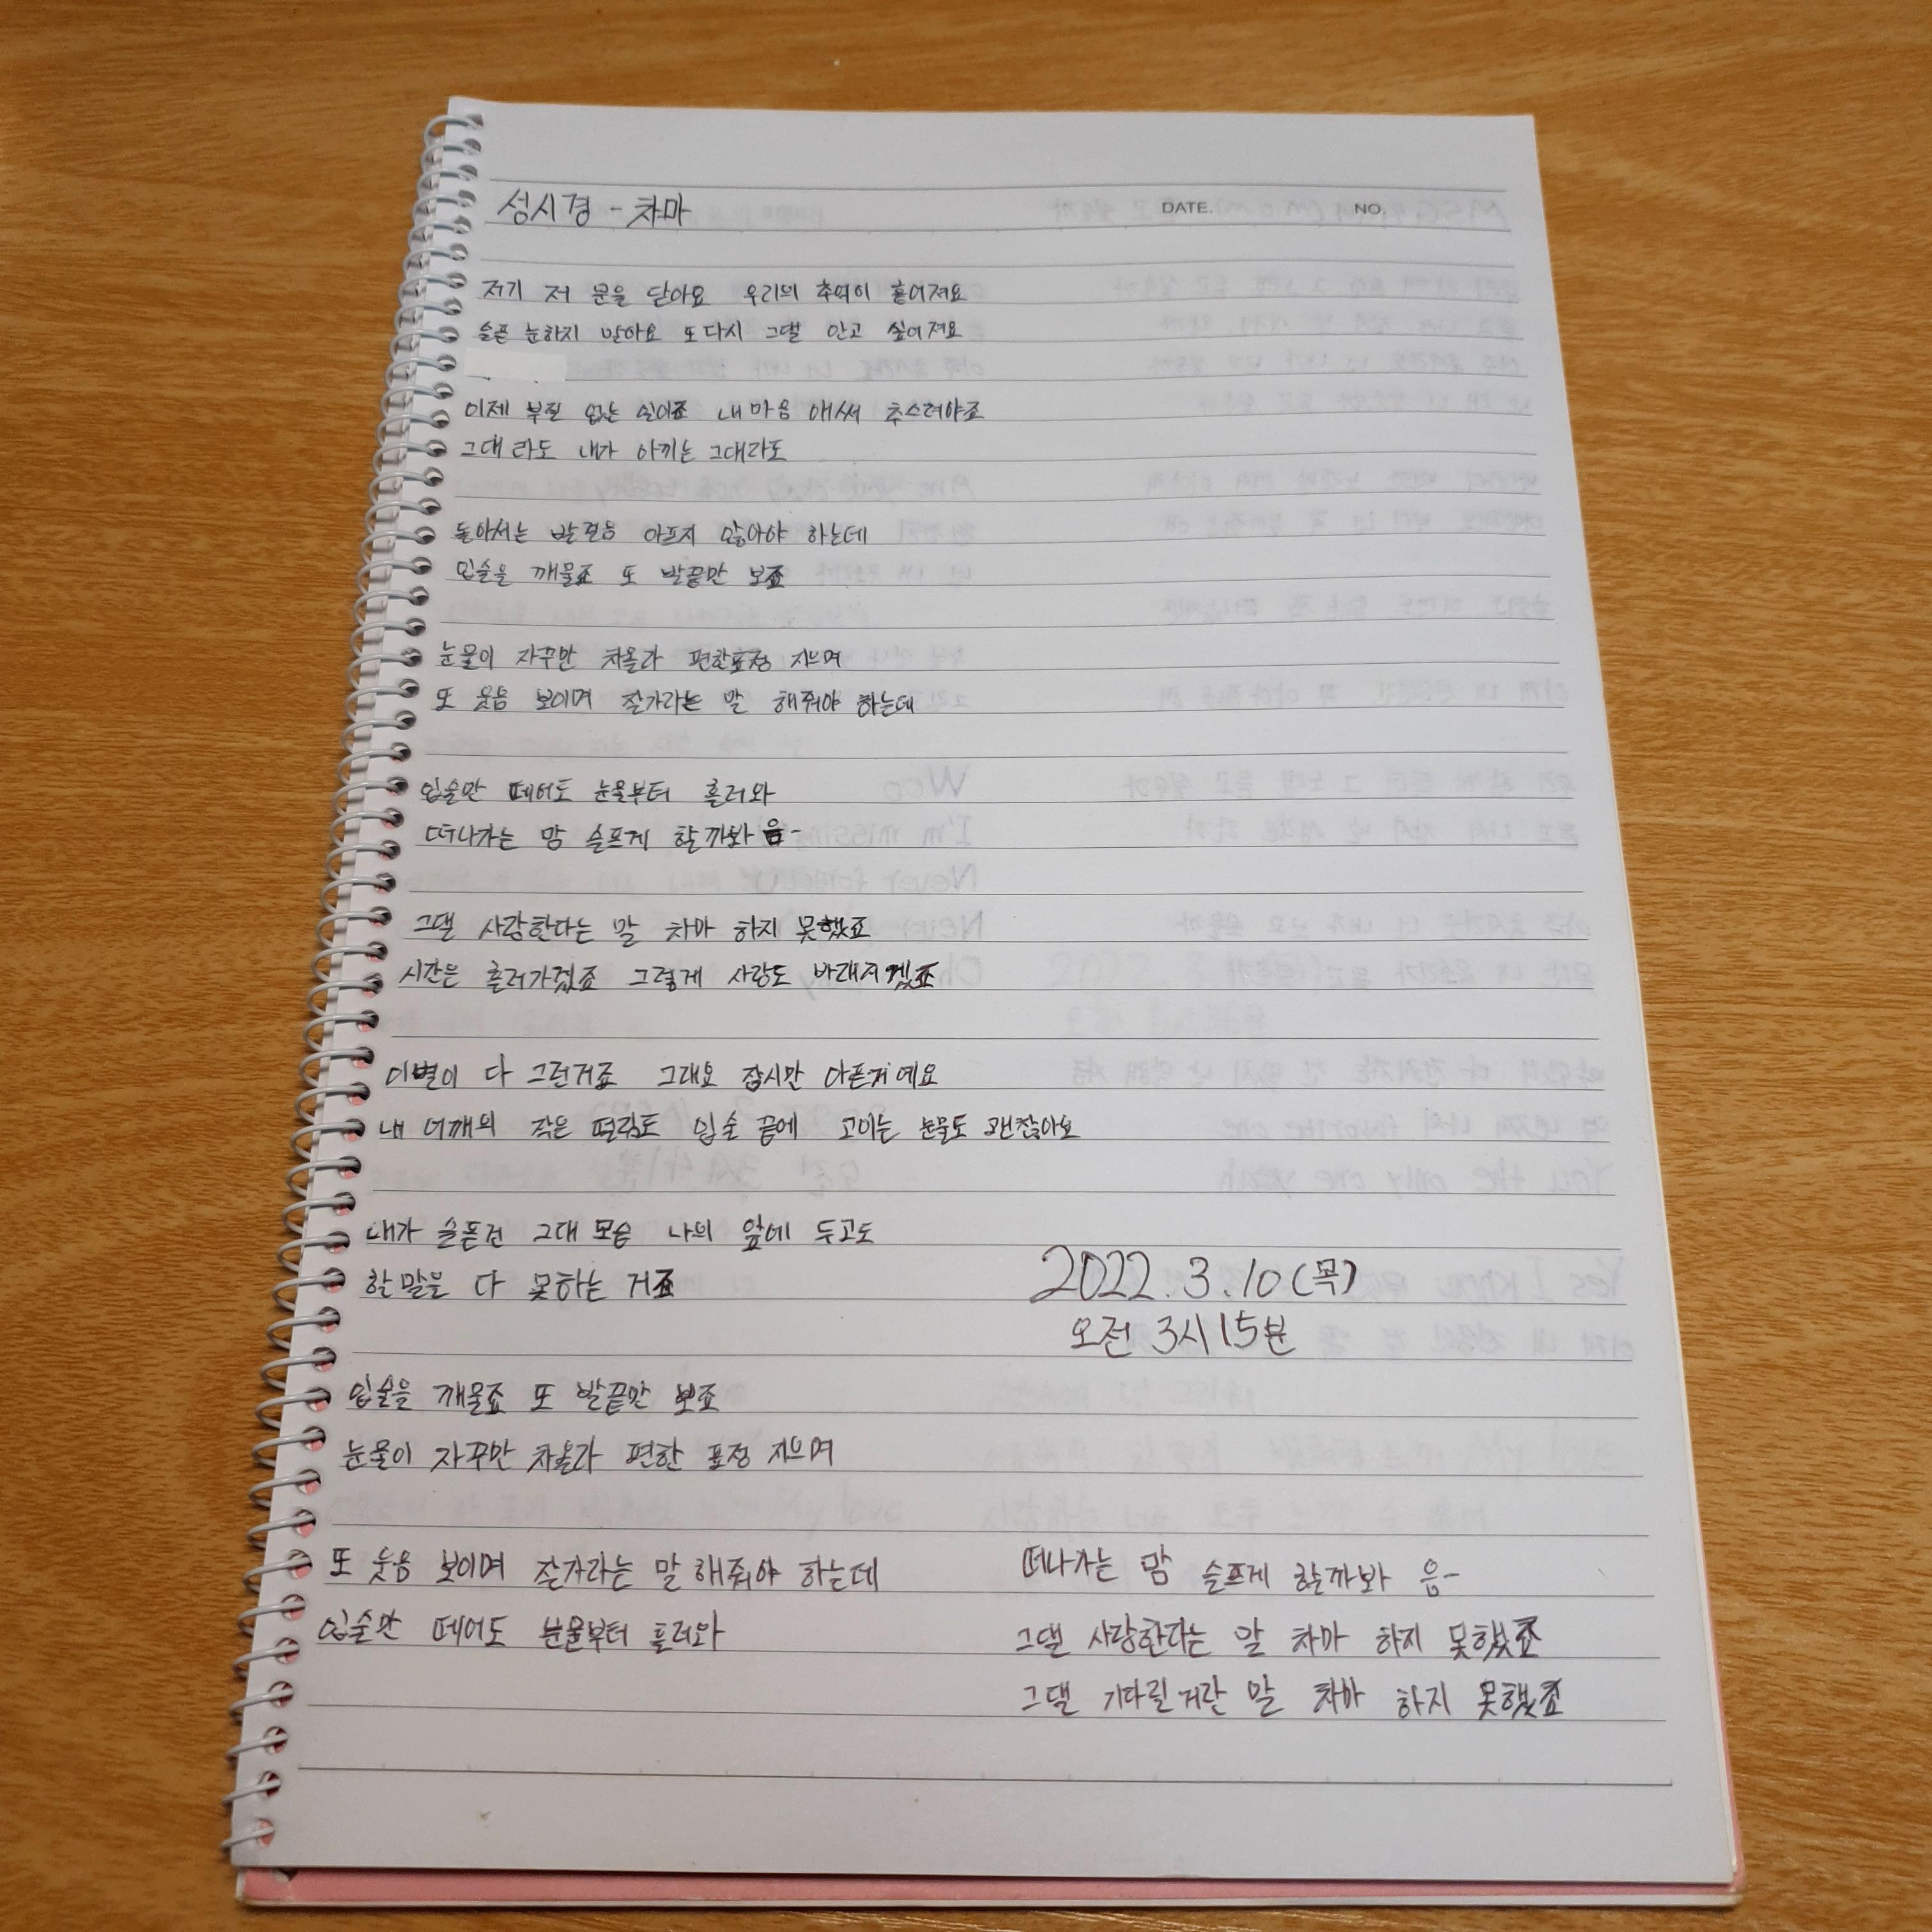 성시경 - 차마
DATE. NO.
저기 저 문을 닫아요 우리의 추억이 흩어져요
슬픈 눈하지 말아요 또다시 그댈 안고 싶어져요
이제 부질 없는 일이죠 내 마음 애써 추스려야죠
그대라도 내가 아끼는 그대라도
돌아서는 발걸음 아프지 않아야 하는데
입술을 깨물죠 또 발끝만 보죠
눈물이 자꾸만 차올라 편한표정 지으며
또 웃음 보이며 잘가라는 말 해줘야 하는데
입술만 떼어도 눈물부터 흘러와
떠나가는 맘 슬프게 할까봐 음-
그댈 사랑한다는 말 차마 하지 못했죠
시간은 흘러가겠죠 그렇게 사랑도 바래지겠죠
이별이 다 그런거죠 그래요 잠시만 아픈거예요
내 어깨의 작은 떨림도 입술 끝에 고이는 눈물도 괜찮아요
내가 슬픈건 그대 모습 나의 앞에 두고도
할말을 다 못하는 거죠
2022. 3. 10 (목)
오전 3시 15분
입술을 깨물죠 또 발끝만 보죠
눈물이 자꾸만 차올라 편한 표정 지으며
또 웃음 보이며 잘가라는 말 해줘야 하는데
입술만 떼어도 눈물부터 흘러와
떠나가는 맘 슬프게 할까봐 음-
그댈 사랑한다는 말 차마 하지 못했죠
그댈 기다릴거란 말 차마 하지 못했죠